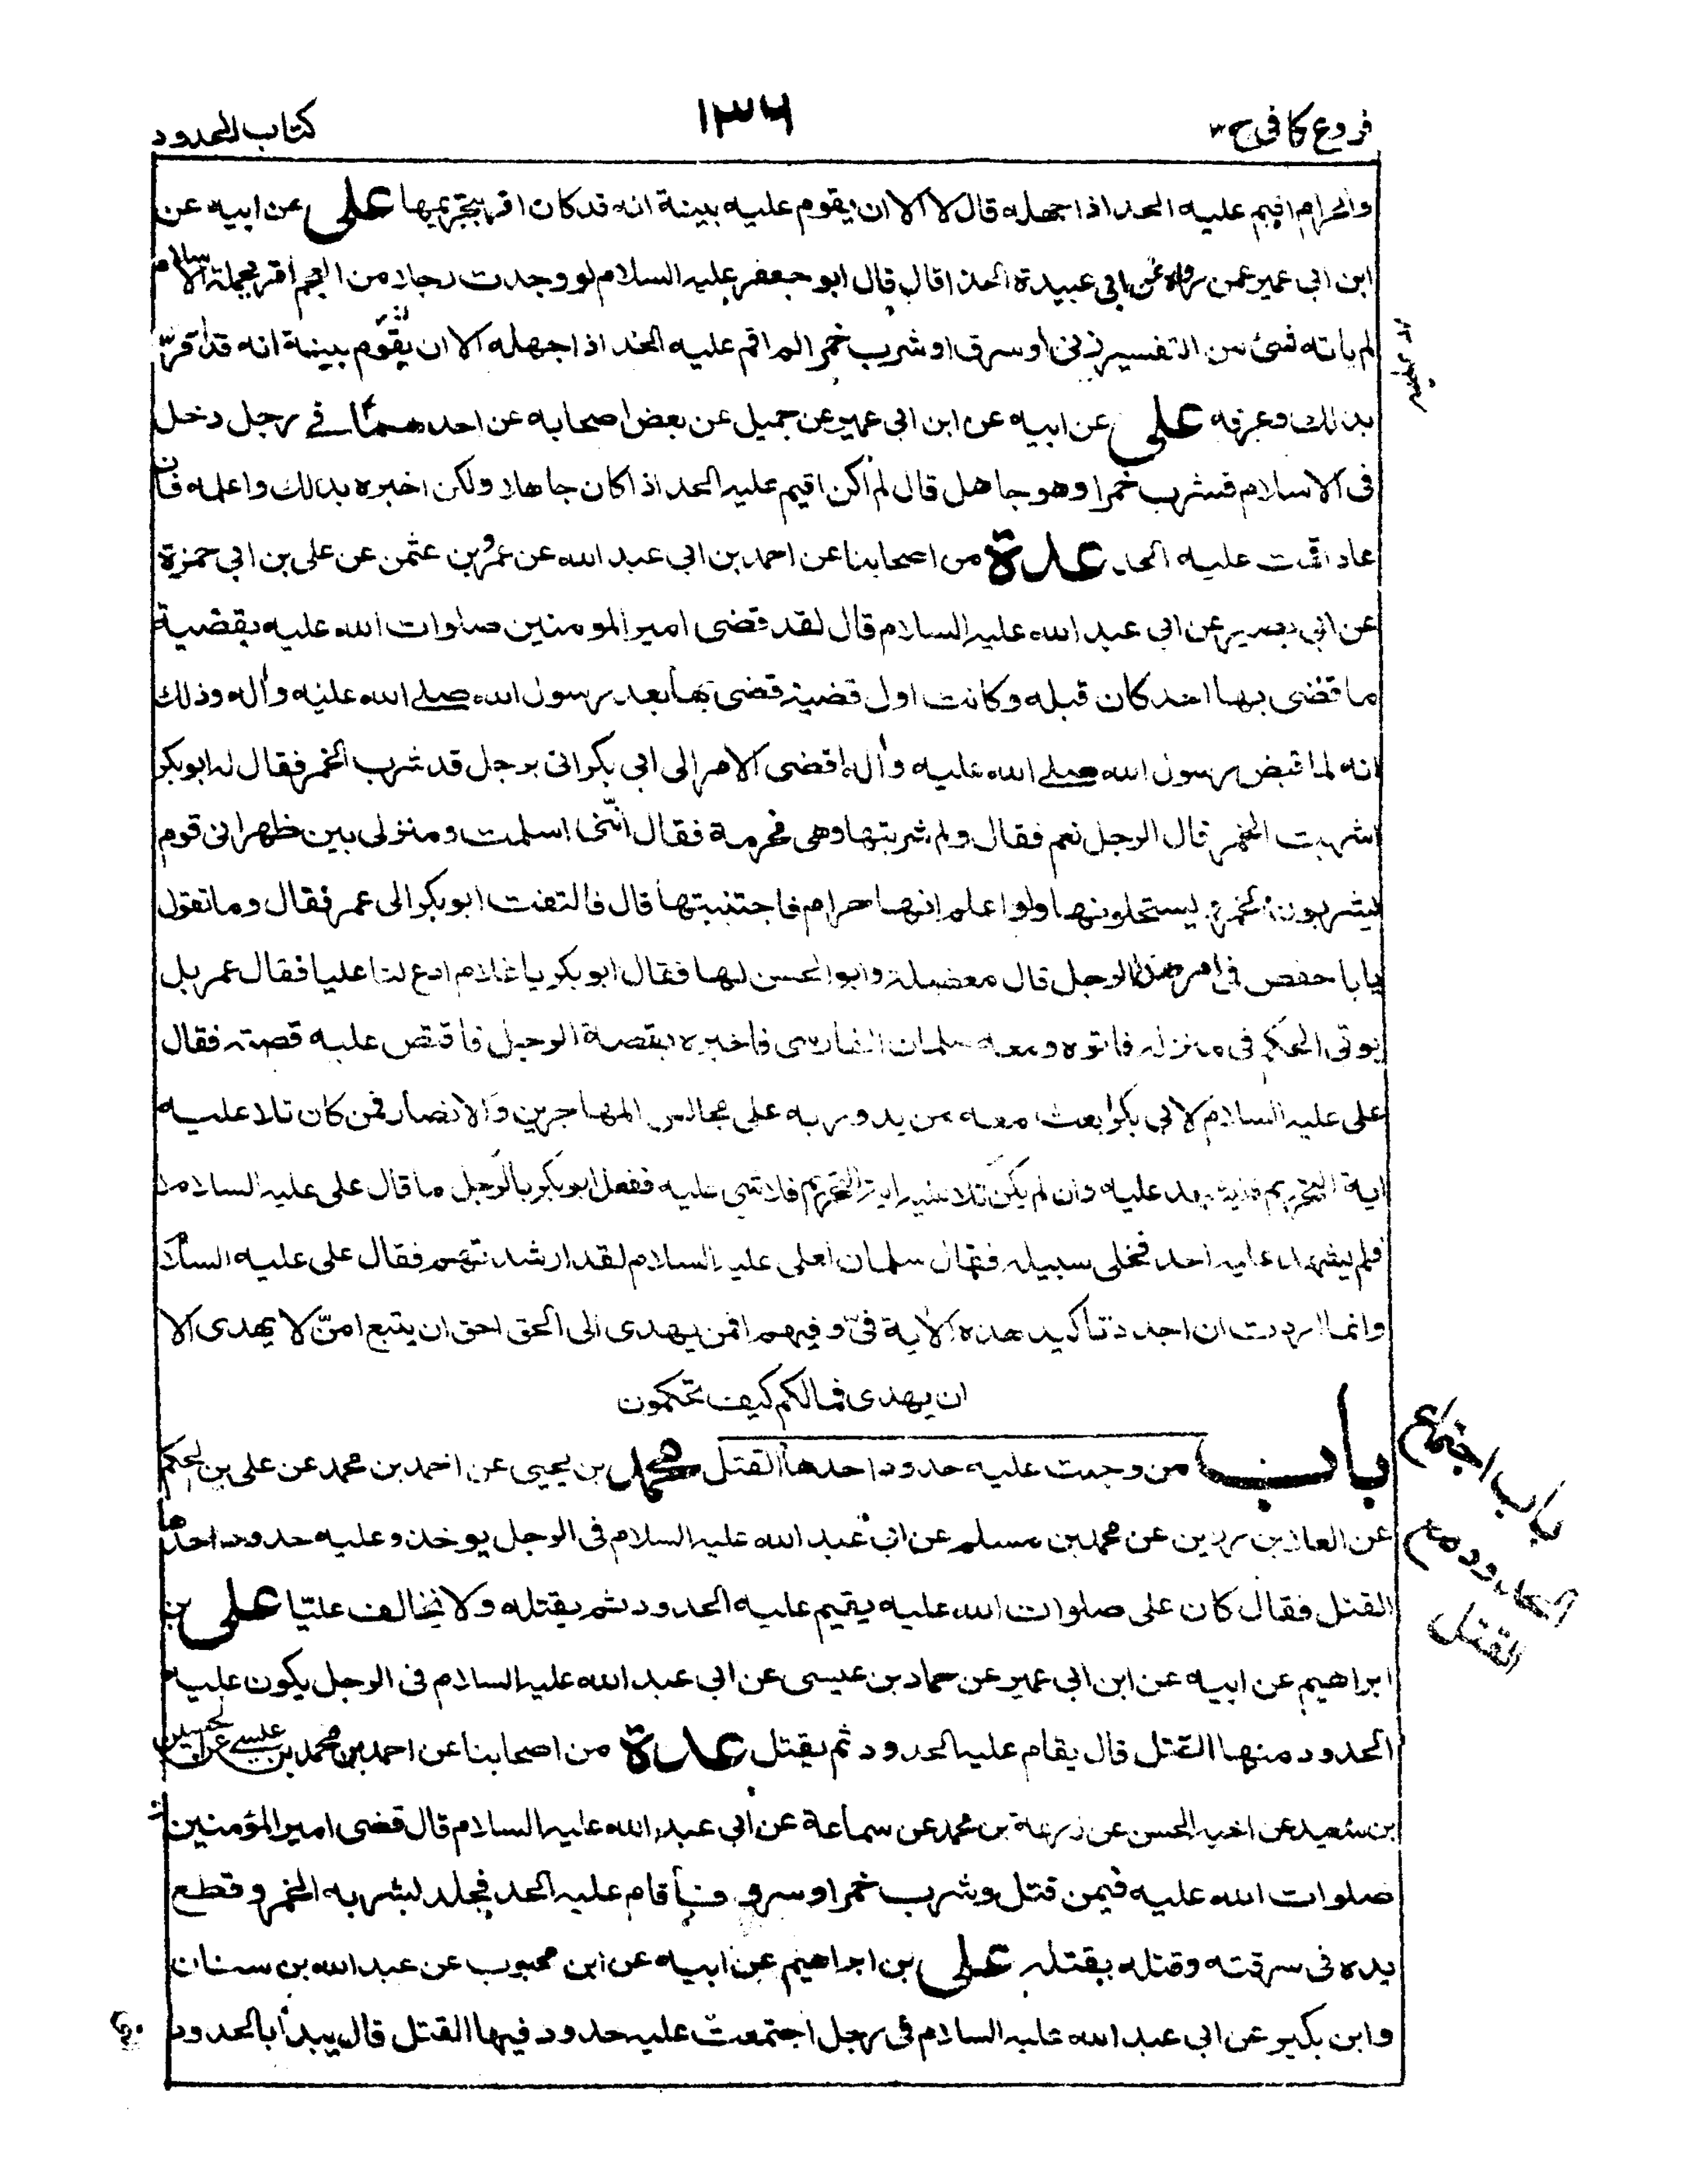 فروع كافى ج ٣
١٣٦
كتاب الحدود
والحرام اقيم عليه الحد اذا جهله قال لا الا ان يقوم عليه بينة انه قد كان اقر بتحريمها على عن ابيه عن
ابن ابي عمير عمن رواه عن ابي عبيدة الحذا قال قال ابو جعفر عليه السلام لو وجدت رجلا من العجم اقر بجملة الاسلام
لم ياته شئ من التفسير زنى او سرق او شرب خمرا لم اقم عليه الحد اذا جهله الا ان يقوم بينة انه قد اقرّ
بذلك وعرفه على عن ابيه عن ابن ابي عمير عن جميل عن بعض اصحابه عن احدهما في رجل دخل
فى الاسلام فشرب خمرا وهو جاهل قال لم اكن اقيم عليه الحد اذا كان جاهلا ولكن اخبره بذلك واعلمه فان
عاد اقمت عليه الحد عدة من اصحابنا عن احمد بن ابي عبد الله عن عمرو بن عثمن عن على بن ابي حمزة
عن ابي بصير عن ابي عبد الله عليه السلام قال لقد قضى امير المومنين صلوات الله عليه بقضية
ما قضى بها احد كان قبله وكانت اول قضية قضى بها بعد رسول الله صلے الله عليه واله وذلك
انه لما قبض رسول الله صلے الله عليه واله افضى الامر الى ابي بكر اتى برجل قد شرب الخمر فقال له ابوبكر
اشربت الخمر قال الرجل نعم فقال ولم شربتها وهى محرمة فقال اننى اسلمت ومنزلى بين ظهرانى قوم
يشربون الخمر و يستحلونها ولو اعلم انها حرام فاجتنبتها قال فالتفت ابوبكر الى عمر فقال وما تقول
يابا حفص فى امر هذا الرجل قال معضلة وابو الحسن لها فقال ابوبكر يا غلام ادع لنا عليا فقال عمر بل
يوتى الحكم فى منزله فاتوه ومعه سلمان الفارسى فاخبره بقصة الرجل فاقتص عليه قصته فقال
على عليه السلام لابي بكر ابعث معه من يدور به على مجالس المهاجرين والانصار فمن كان تلا عليه
اية التحريم فليشهد عليه وان لم يكن تلا عليه اية التحريم فلا شئ عليه ففعل ابوبكر بالرجل ما قال على عليه السلام
فلم يشهد عليه احد فخلى سبيله فقال سلمان لعلى عليه السلام لقد ارشدتهم فقال على عليه السلام
وانما اردت ان اجدد تاكيد هذه الاية فىّ وفيهم افمن يهدى الى الحق احق ان يتبع امنّ لا يهدى الا
ان يهدى فمالكم كيف تحكمون
باب من وجبت عليه حدود احدها القتل محمد بن يحيى عن احمد بن محمد عن على بن الحكم
عن العلا بن رزين عن محمد بن مسلم عن ابى عبد الله عليه السلام فى الرجل يوخذ وعليه حدود احدها
القتل فقال كان على صلوات الله عليه يقيم عليه الحدود ثم يقتله ولا نخالف عليّا على بن
ابراهيم عن ابيه عن ابن ابي عمير عن حماد بن عيسى عن ابي عبد الله عليه السلام فى الرجل يكون عليه
الحدود منها القتل قال يقام عليه الحدود ثم يقتل عدة من اصحابنا عن احمد بن محمد بن عيسے عن الحسين
بن سعيد عن اخيه الحسن عن زرعة بن محمد عن سماعة عن ابي عبد الله عليه السلام قال قضى امير المؤمنين
صلوات الله عليه فيمن قتل وشرب خمرا وسرق فاقام عليه الحد فجلد لشربه الخمر وقطع
يده فى سرقته وقتله بقتله على بن ابراهيم عن ابيه عن ابن محبوب عن عبد الله بن سنان
وابن بكير عن ابي عبد الله عليه السلام فى رجل اجتمعت عليه حدود فيها القتل قال يبدأ بالحدود
باب اجتماع
الحدود مع
القتل